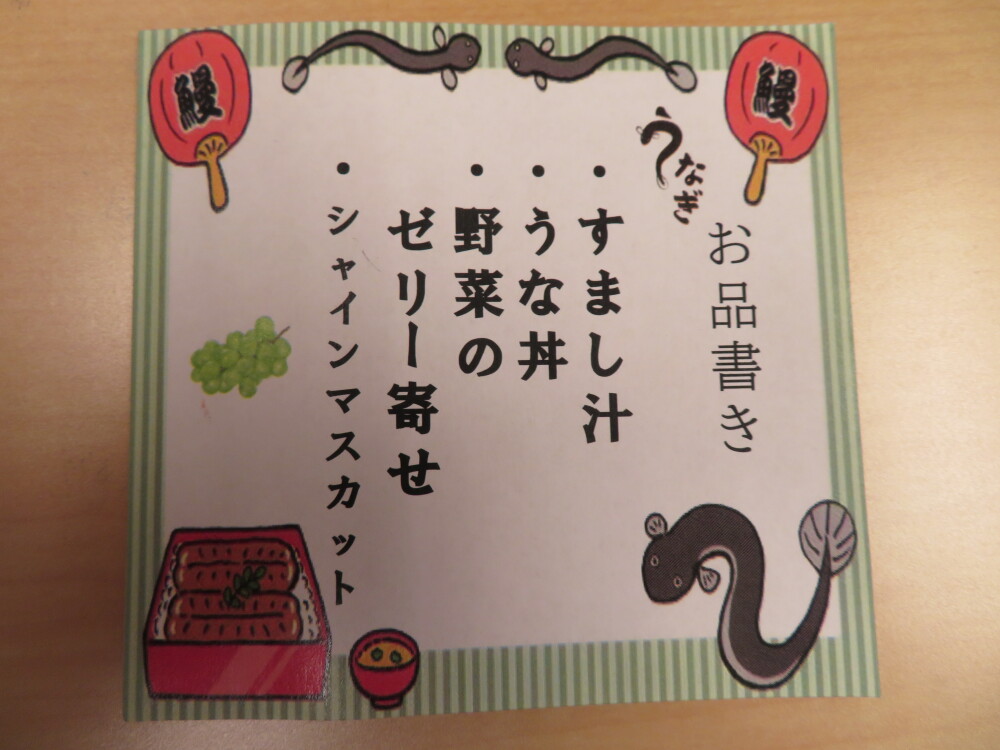 鰻
鰻
うなぎ
お品書き
・すまし汁
・うな丼
・野菜の
ゼリー寄せ
・シャインマスカット